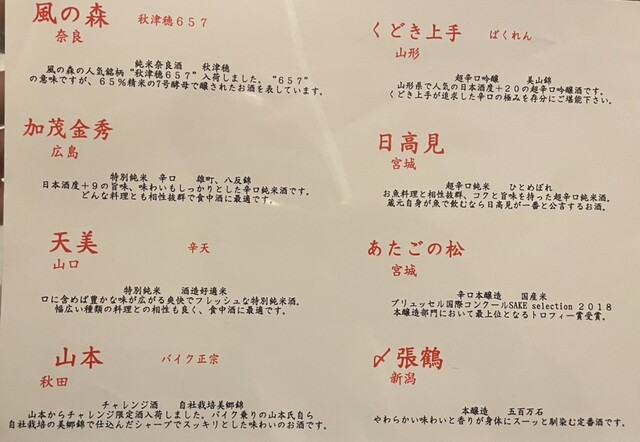 風の森 秋津穂657
奈良
純米奈良酒 秋津穂
風の森の人気銘柄“秋津穂657”入荷しました。“657”
の意味ですが、65%精米の7号酵母で醸されたお酒を表しています。
加茂金秀
広島
特別純米 辛口 雄町、八反錦
日本酒度+9の旨味、味わいもしっかりとした辛口純米酒です。
どんな料理とも相性抜群で食中酒に最適です。
天美 辛天
山口
特別純米 酒造好適米
口に含めば豊かな味が広がる爽快でフレッシュな特別純米酒。
幅広い種類の料理との相性も良く、食中酒に最適です。
山本 バイク正宗
秋田
チャレンジ酒 自社栽培美郷錦
山本からチャレンジ限定酒入荷しました。バイク乗りの山本氏自ら
自社栽培の美郷錦で仕込んだシャープでスッキリとした味わいのお酒です。
くどき上手 ばくれん
山形
超辛口吟醸 美山錦
山形県で人気の日本酒度+20の超辛口吟醸酒です。
くどき上手が追求した辛口の極みを存分にご堪能下さい。
日高見
宮城
超辛口純米 ひとめぼれ
お魚料理と相性抜群、コクと旨味を持った超辛口純米酒。
蔵元自身が魚で飲むなら日高見が一番と公言するお酒。
あたごの松
宮城
辛口本醸造 国産米
ブリュッセル国際コンクールSAKE selection 2018
本醸造部門において最上位となるトロフィー賞受賞。
〆張鶴
新潟
本醸造 五百万石
やわらかい味わいと香りが身体にスーッと馴染む定番酒です。